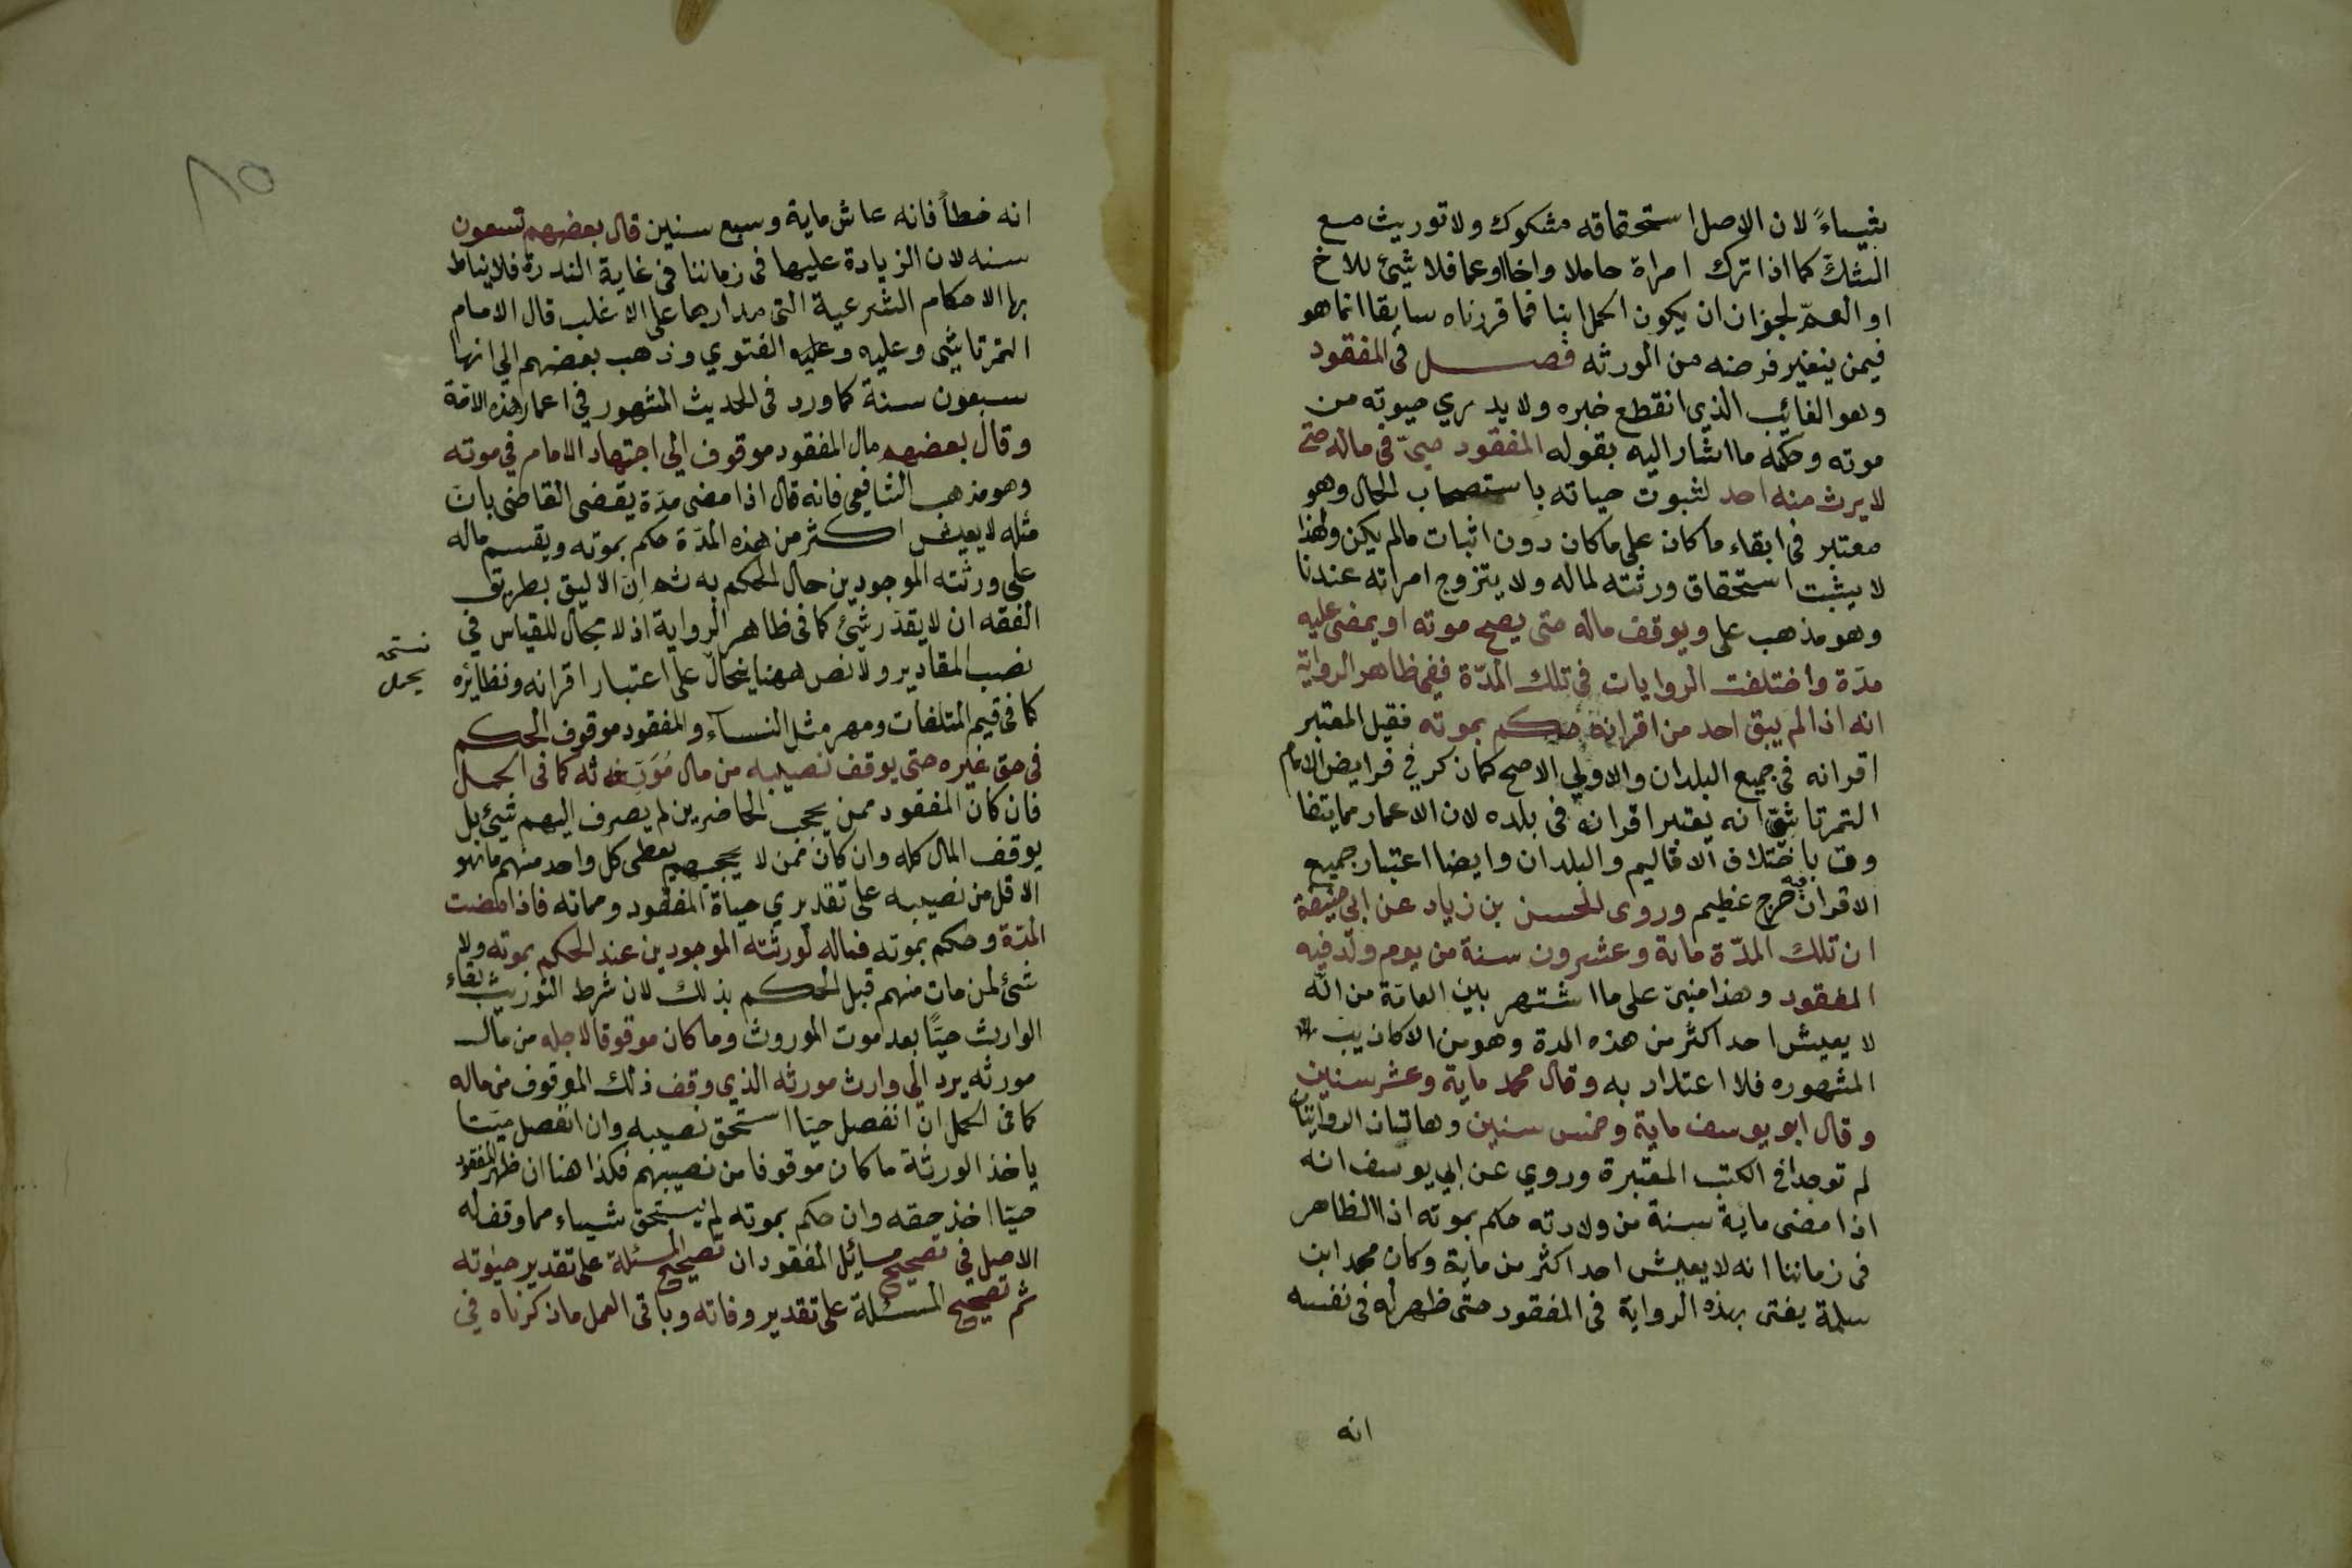 شيباءً لان الاصل استحقاقه مشكوك ولا توريث مع
الشكّ كما اذا ترك امراة حاملا واخا او عما فلا شيئ للاخ
او العمّ لجوزان ان يكون الحمل ابنا فما قرزناه سابقا انما هو
فيمن يتغير فرضه من الورثه فصل فى المفقود
وهو الغائب الذي انقطع خبره ولا يدري حيوته من
موته وحكمه ما اشار اليه بقوله المفقود حيّ فى ماله حتى
لا يرث منه احد لثبوت حياته باستصحاب الحال وهو
معتبر فى ابقاء ما كان على ما كان دون اثبات مالم يكن ولهذا
لا يثبت استحقاق ورثته لماله ولا يتزوج امراته عندنا
وهو مذهب على ويوقف ماله حتى يصح موته او يمضى عليه
مدّة واختلفت الروايات فى تلك المدّة ففى ظاهر الرواية
انه اذا لم يبق احد من اقرانه حكم بموته فقيل المعتبر
اقرانه فى جميع البلدان والاولي الاصح كما ذكر في فرايض الامام
التمرتاشىّ انه يعتبر اقرانه فى بلده لان الاعمار مما يتفا
وت باختلاف الاقاليم والبلدان وايضا اعتبار جميع
الاقران فيه حرج عظيم وروى الحسن بن زياد عن ابى حنيفة
ان تلك المدّة ماية وعشرون سنة من يوم ولد فيه
المفقود وهذا مبنىّ على ما اشتهر بين العامّة من انّه
لا يعيش احد اكثر من هذه المدة وهو من الاكاذيب
المشهوره فلا اعتداد به وقال محمد ماية وعشر سنين
وقال ابو يوسف ماية وخمس سنين وهاتان الروايتان
لم توجدا في الكتب المعتبرة وروي عن ابي يوسف انه
اذا مضى ماية سنة من ولادته حكم بموته اذ الظاهر
فى زماننا انه لا يعيش احد اكثر من ماية وكان محمد ابن
سلمة يفتى بهذه الرواية فى المفقود حتى ظهر له فى نفسه
انه
٨٥
انه خطأ فانه عاش ماية وسبع سنين قال بعضهم تسعون
سنه لان الزيادة عليها فى زماننا فى غاية الندرة فلا يناط
بها الاحكام الشرعية التى مدارها على الاغلب قال الامام
التمرتاشى وعليه وعليه الفتوي وذهب بعضهم الي انها
سبعون سنة كما ورد فى الحديث المشهور في اعمار هذه الامّة
وقال بعضهم مال المفقود موقوف الى اجتهاد الامام في موته
وهو مذهب الشافعى فانه قال اذا مضى مدّة يقضى القاضى بانّ
مثله لا يعيش اكثر من هذه المدّة حكم بموته ويقسم ماله
على ورثته الموجودين حال الحكم به ثم ان الاليق بطريق
الفقه ان لا يقدّر شئ كما فى ظاهر الرواية اذ لا مجال للقياس في
نصب المقادير ولا نص ههنا يحال على اعتبار اقرانه ونظائره
كما فى قيم المتلفات ومهر مثل النساء والمفقود موقوف الحكم
فى حق غيره حتى يوقف نصيبه من مال مُوَرِّثه كما فى الحمل
فان كان المفقود ممن يحجب الحاضرين لم يصرف اليهم شيئ بل
يوقف المال كله وان كان ممن لا يحجبهم يعطى كل واحد منهم ما هو
الاقل من نصيبه على تقديري حياة المفقود ومماته فاذا مضت
المدّة وحكم بموته فماله لورثته الموجودين عند الحكم بموته ولا
شئ لمن مات منهم قبل الحكم بذلك لان شرط التوريث بقاء
الوارث حيّاً بعد موت الموروث وما كان موقوفا لاجله من مال
مورثه يرد الي وارث مورثه الذي وقف ذلك الموقوف من ماله
كما فى الحمل ان انفصل حيّا استحق نصيبه وان انفصل ميّتا
ياخذ الورثة ما كان موقوفا من نصيبهم فكذا هنا ان ظهر المفقود
حيّا اخذ حقه وان حكم بموته لم يستحق شيباء مما وقف له
الاصل في تصحيح مسائل المفقود ان تصحيح المسئلة على تقدير حيوته
ثم تصحيح المسئلة على تقدير وفاته وباقى العمل ما ذكرناه في